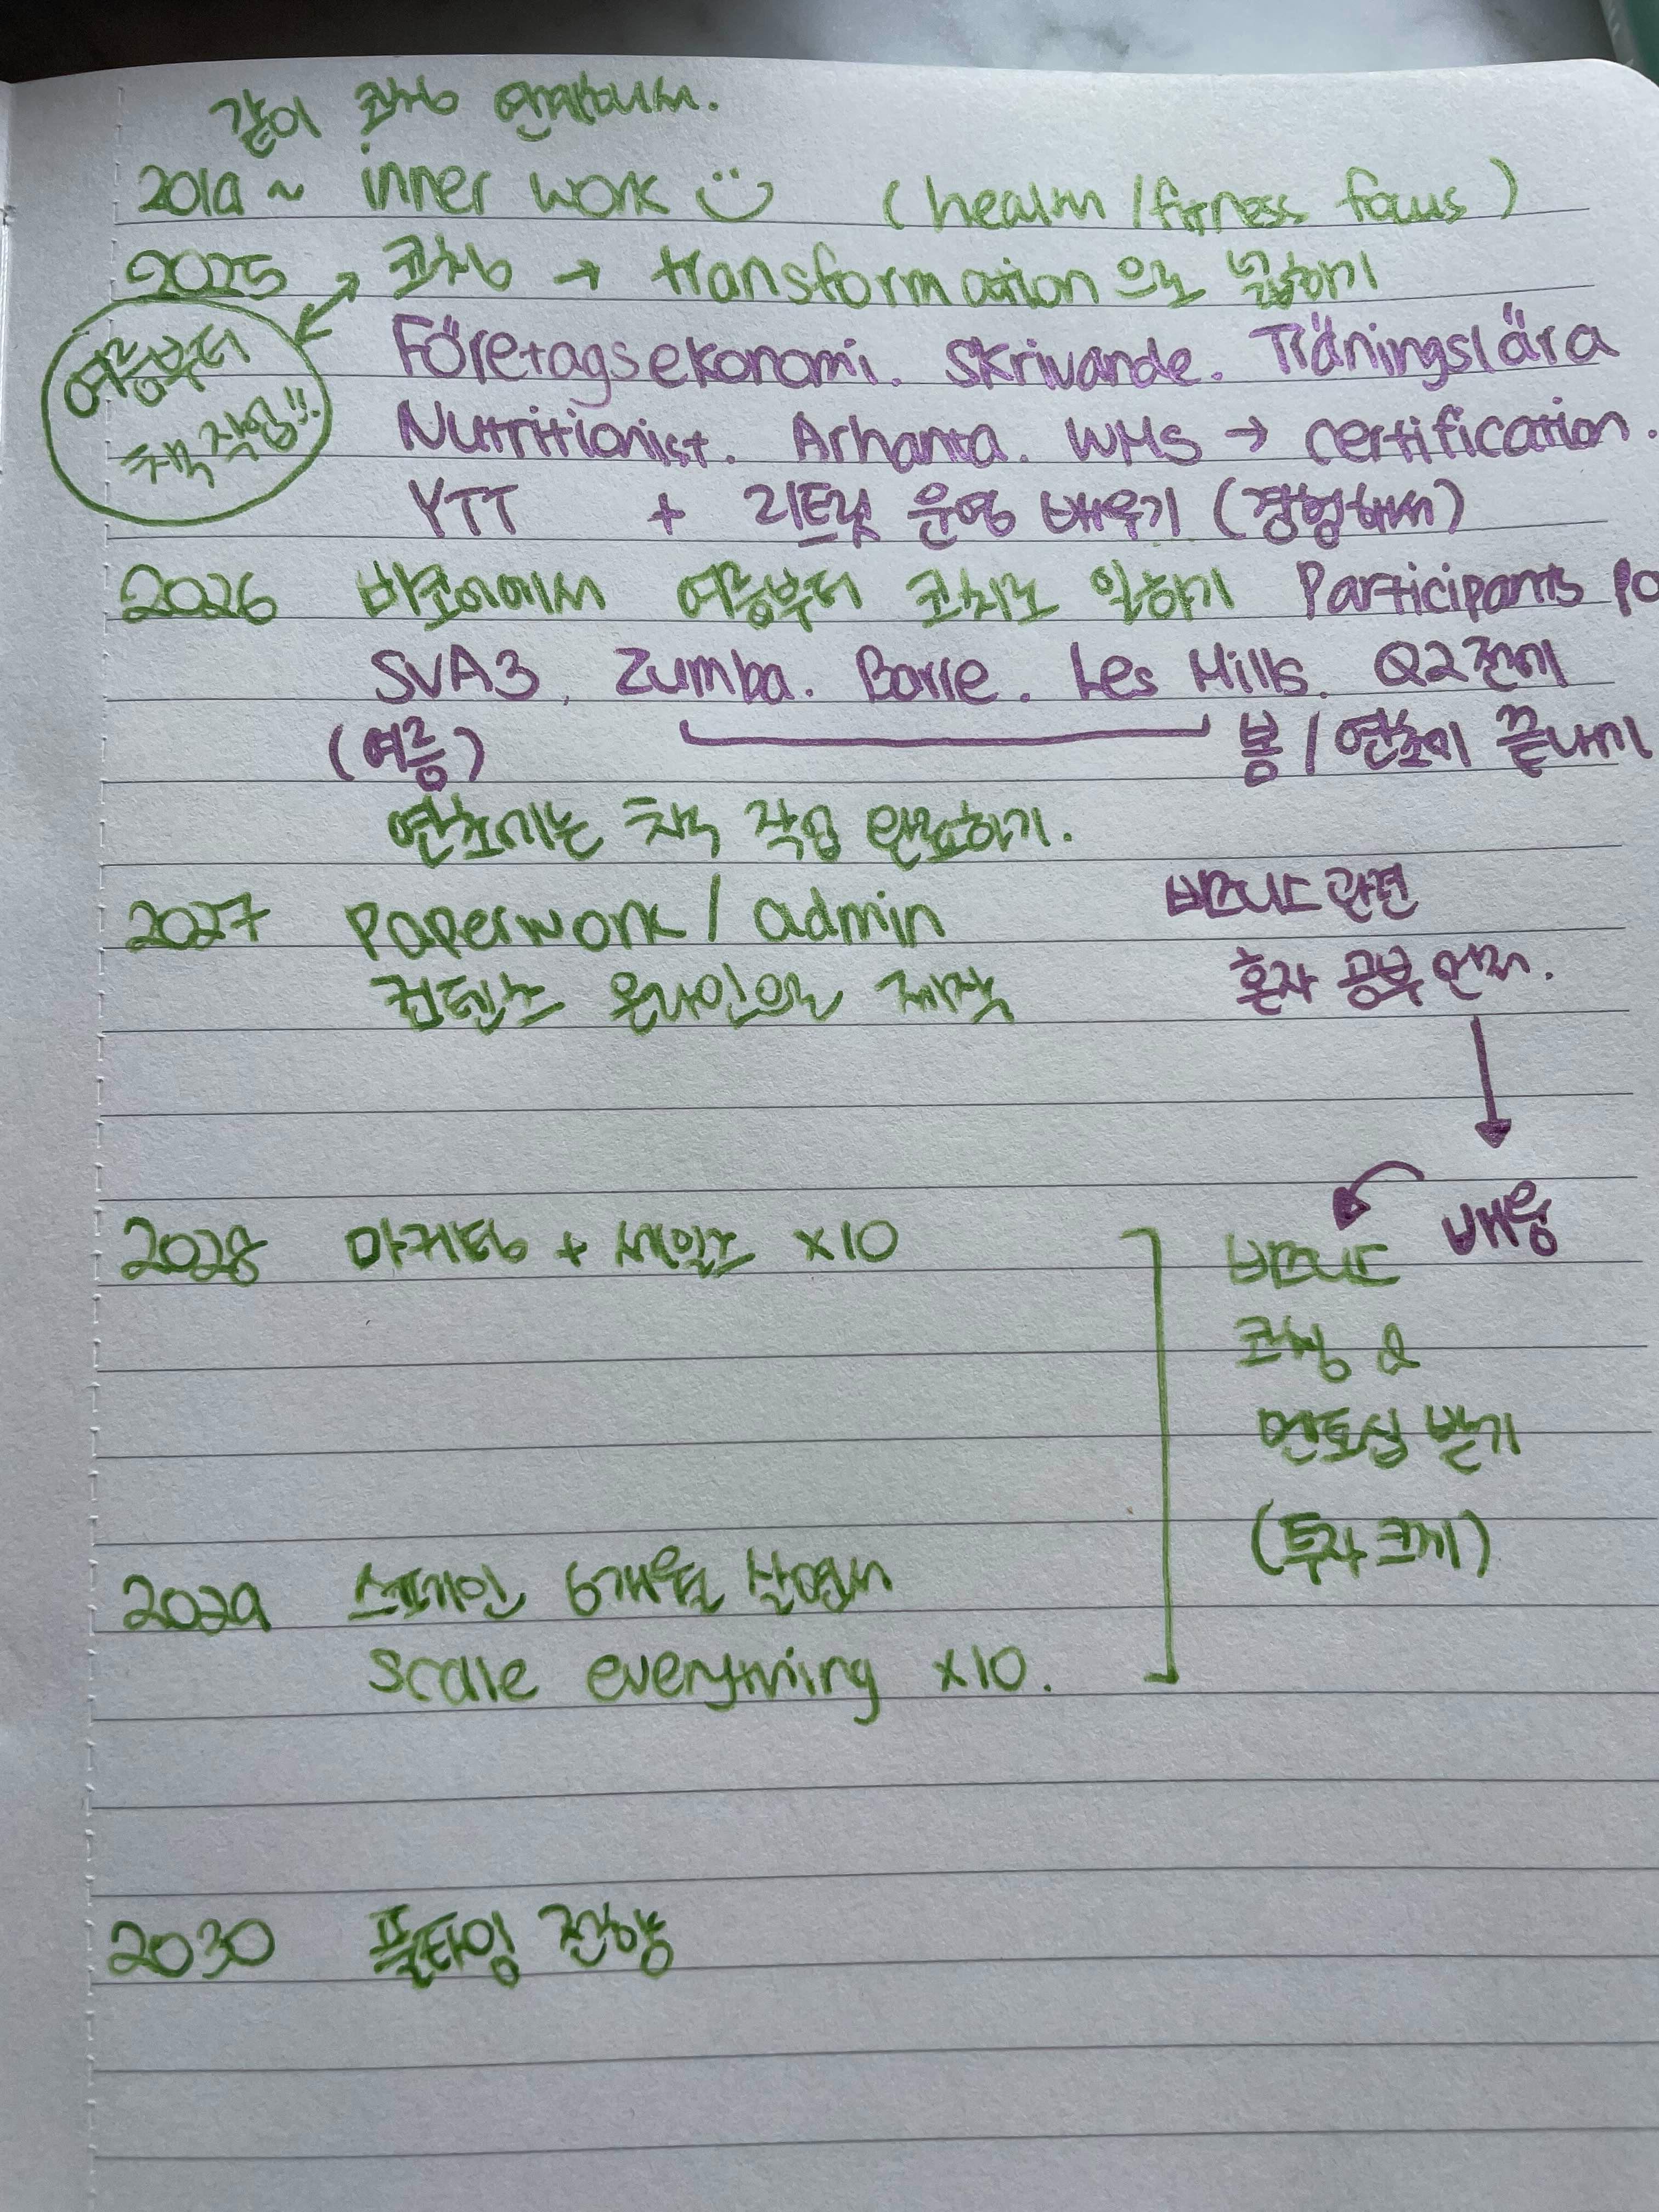 같이 코칭 연계해서.
2019 ~ inner work (health / fitness focus)
2025 코칭 → transformation으로 일하기
여름부터
책 작업!!.
Företagsekonomi. Skrivande. Träningslära
Nutritionist. Arhanta. WHS → certification.
YTT + 리트릿 운영 배우기 (경험해서)
2026 바코에서 여름부터 코치로 일하기 Participants
SVA3, Zumba. Barre. Les Mills. Q2전에
(여름) 봄 / 연초에 끝내기
연초에는 책 작업 완료하기.
2027 Paperwork / admin
비즈니스 관련
컨텐츠 온라인으로 제작
혼자 공부
배움
2028 마케팅 + 세일즈 x10
비즈니스
코칭 &
멘토십 받기
(투자 크게)
2029 스페인 6개월 살면서
scale everything x10.
2030 풀타임 전향